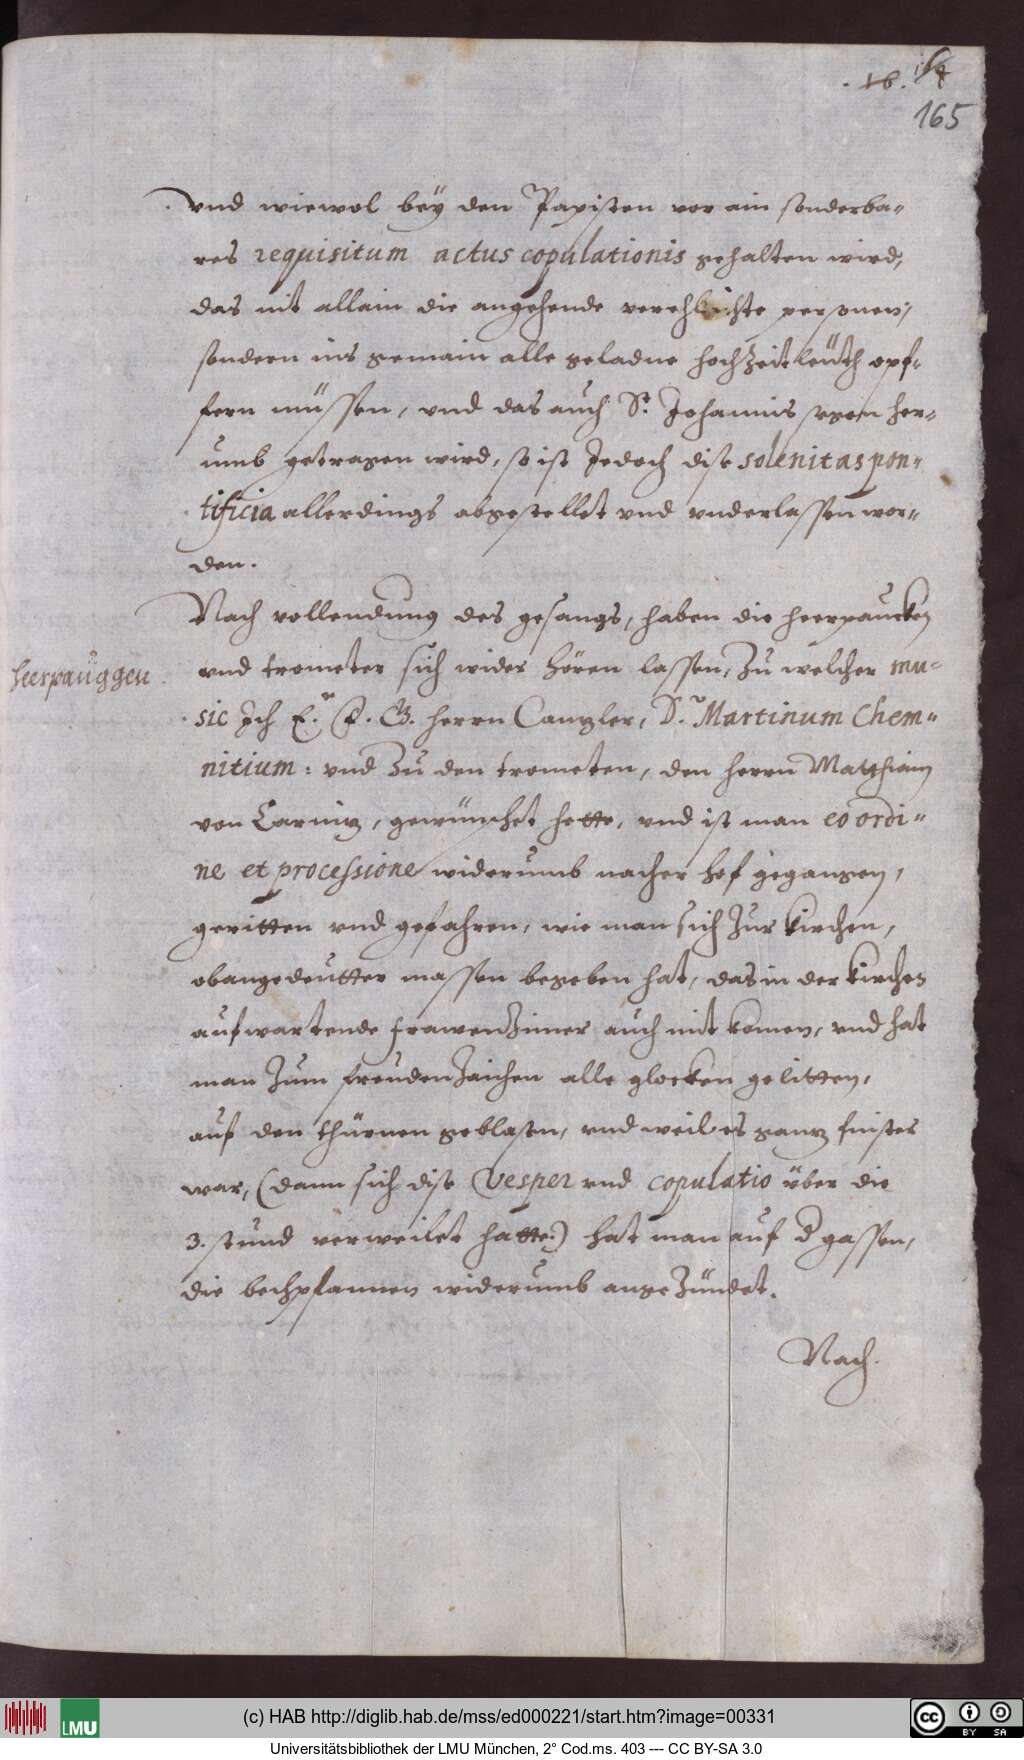 165
vnd wiewol bey den Papisten vor ain sonderba-
res requisitum actus copulationis gehalten wird,
das nit allain die angehende verehlichte personen,
sondern ins gemain alle geladne hochzeitleüth opf-
fern müssen, vnd das auch St. Johannis segen her-
umb getragen wird, so ist Jedoch dise solenitas pon-
tificia allerdings abgestellet vnd vnderlassen wor-
den.
Nach vollendung des gesangs, haben die heerpaucken
vnd trometer sich wider hören lassen, zu welcher mu-
heerpauggen
sic Ich E. F. G. herrn Cantzler, Dr. Martinum Chem-
nitium: vnd zu den trometen, den herrn Matthiam
von Carnitz, gewünschet hette, vnd ist man eo ordi-
ne et processione widerumb nacher hof gegangen,
geritten vnd gefahren, wie man sich zur kirchen,
obangedeutter massen begeben hat, das in der kirchen
aufwartende frawenzimer auch mit komen, vnd hat
man zum freudenzaichen alle glocken gelitten,
auf den thürnen geblasen, vnd weil es gantz finster
war, (dann sich dise Vesper vnd copulatio über die
3. stund verweilet hatte) hat man auf d gassen,
die bechpfannen widerumb angezündet.
Nach
(c) HAB http://diglib.hab.de/mss/ed000221/start.htm?image=00331
LMU
CC BY SA
Universitätsbibliothek der LMU München, 2° Cod.ms. 403 --- CC BY-SA 3.0